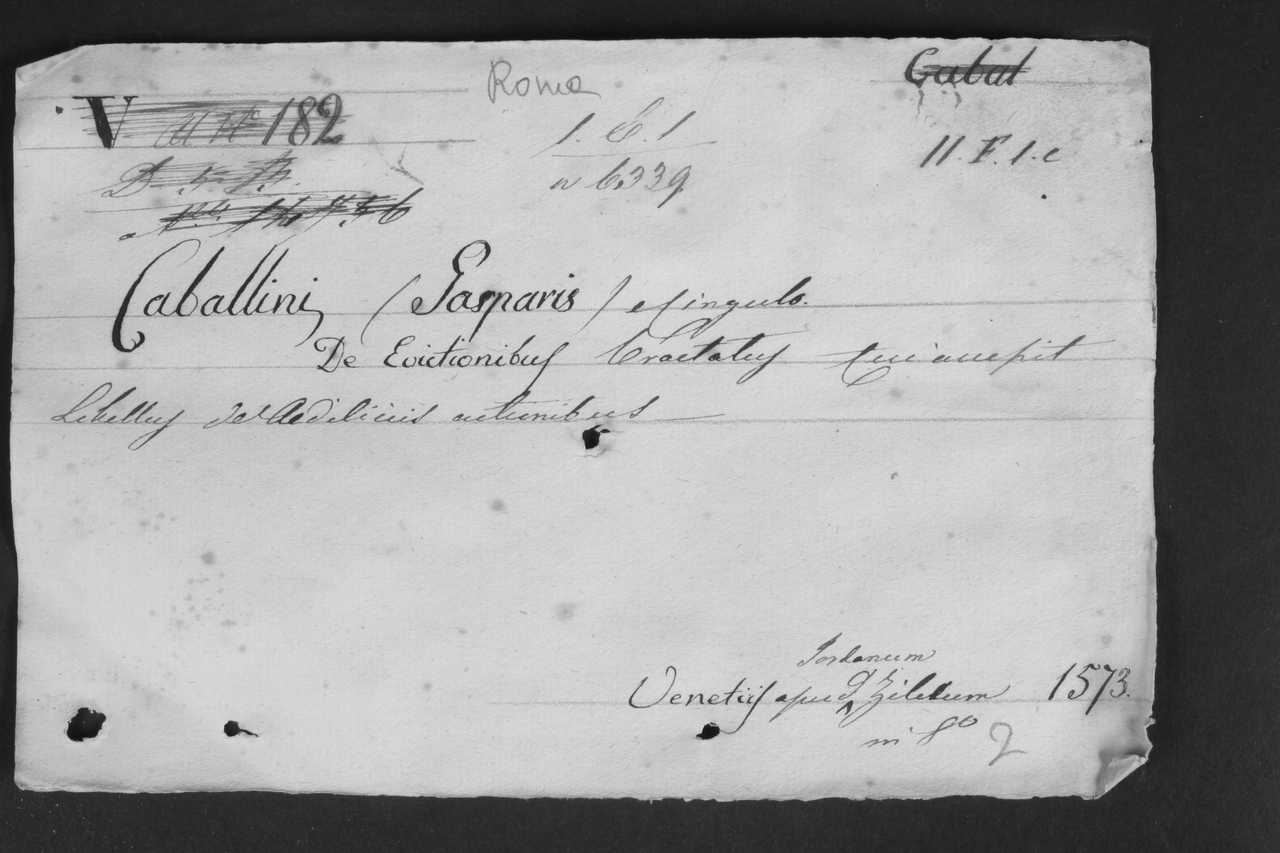 Roma
Cabal
V 182
1. C. 1
11. F. 1. c
n 6339
Caballini (Gasparis) e Cingulo.
De Evictionibus Tractatus cui accessit
Libellus de Aedilitiis actionibus
Jordanum
Venetiis apud Ziletum 1573.
in 8o 2